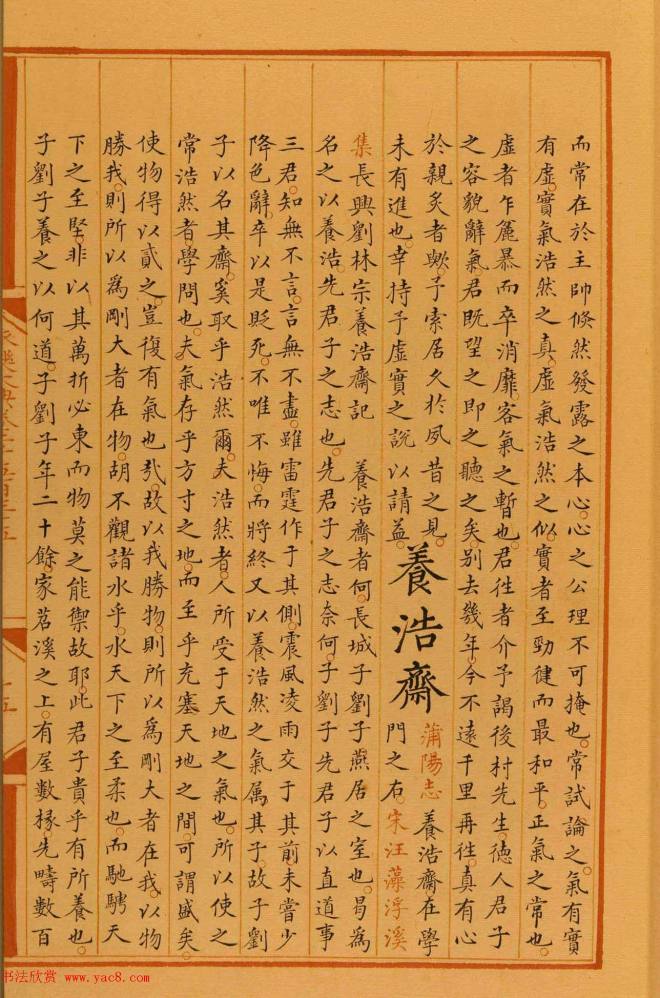 而常在於主帥倏然發露之本心心之公理不可掩也常試論之氣有實
有虛實氣浩然之真虛氣浩然之似實者至勁健而最和平正氣之常也
虛者乍麤暴而卒消靡客氣之暫也君徃者介予謁後村先生德人君子
之容貌辭氣君既望之即之聽之矣别去幾年今不遠千里再徃真有心
於親炙者歟予索居久於夙昔之見
未有進也幸持予虛實之說以請益
養浩齋
蒲陽志 養浩齋在學
門之右宋汪藻浮溪
集長興劉林宗養浩齋記 養浩齋者何長城子劉子燕居之室也曷為
名之以養浩先君子之志也先君子之志奈何子劉子先君子以直道事
三君知無不言言無不盡雖雷霆作于其側震風凌雨交于其前未嘗少
降色辭卒以是貶死不唯不悔而將終又以養浩然之氣属其子故子劉
子以名其齋奚取乎浩然爾夫浩然者人所受于天地之氣也所以使之
常浩然者學問也夫氣存乎方寸之地而至乎充塞天地之間可謂盛矣
使物得以貳之豈復有氣也㦲故以我勝物則所以為剛大者在我以物
勝我則所以為剛大者在物胡不觀諸水乎水天下之至柔也而馳騁天
下之至堅非以其萬折必東而物莫之能禦故耶此君子貴乎有所養也
子劉子養之以何道子劉子年二十餘家苕溪之上有屋數椽先疇數百
书法欣赏 www.yac8.com